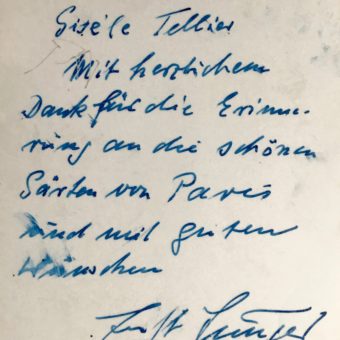 Gisèle Tellier
Mit herzlichem
Dank für die Erinne-
rung an die schönen
Gärten von Paris
und mit guten
Wünschen
Ernst Jünger